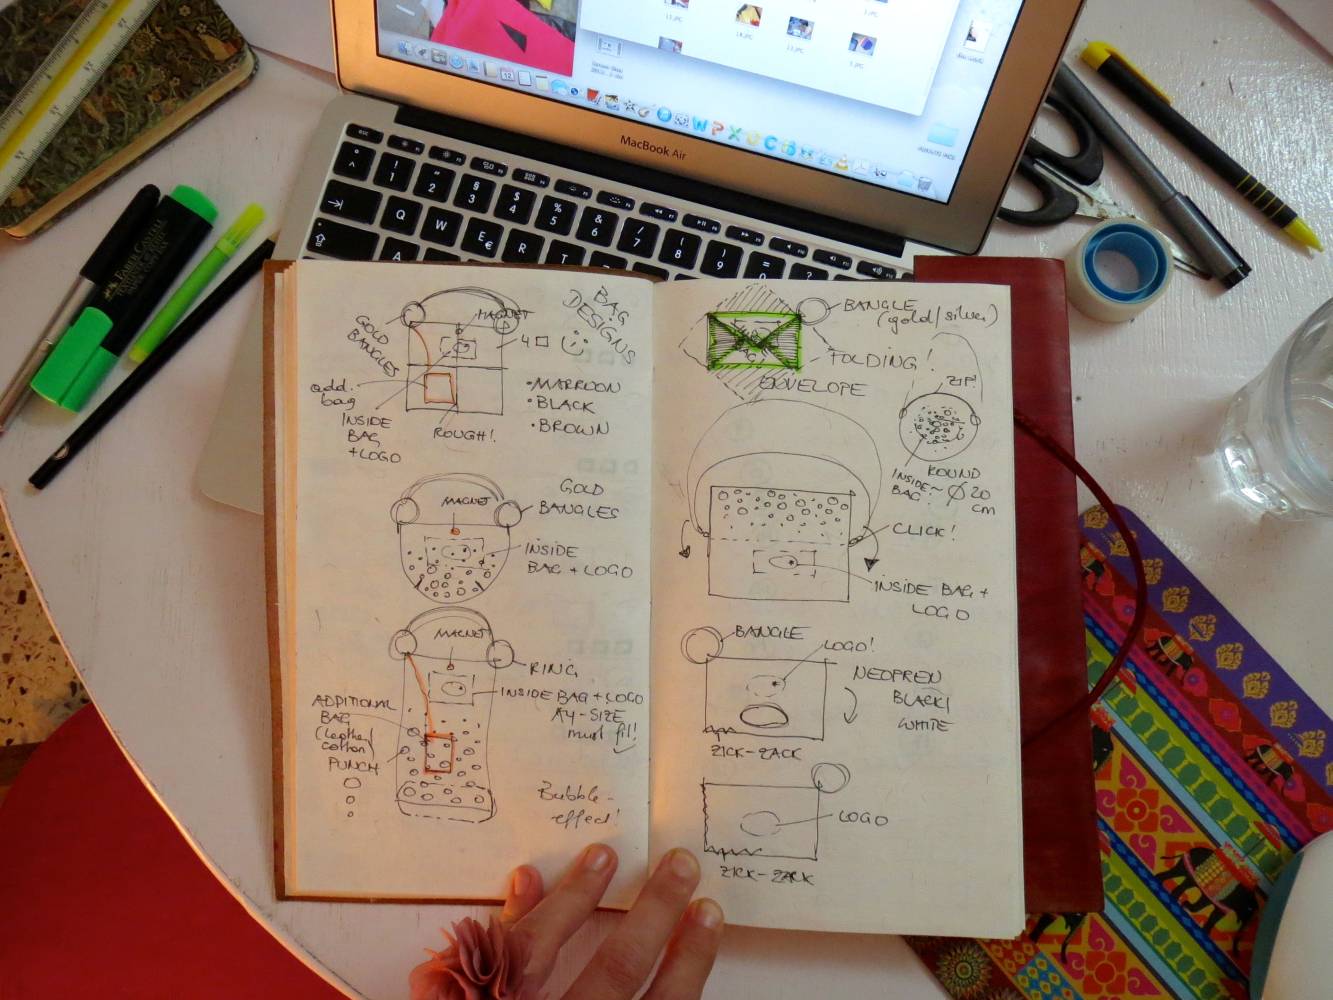 MacBook Air
esc
Q
W
E
R
T
A
FABER-CASTELL
BAG
DESIGNS
MAGNET
GOLD
BANGLES
4
add.
bag
INSIDE
BAG
+LOGO
ROUGH!
•MARROON
•BLACK
•BROWN
GOLD
BANGLES
MAGNET
INSIDE
BAG + LOGO
MAGNET
RING
INSIDE BAG + LOGO
A4-SIZE
must fit!
ADDITIONAL
BAG
(Leather/
cotton)
PUNCH
Bubble-
effect!
BANGLE
(gold/silver)
FOLDING!
ENVELOPE
ZIP!
INSIDE-
BAG
ROUND
Ø 20
cm
CLICK!
INSIDE BAG +
LOGO
BANGLE
LOGO!
NEOPREN
BLACK/
WHITE
ZICK-ZACK
LOGO
ZICK-ZACK